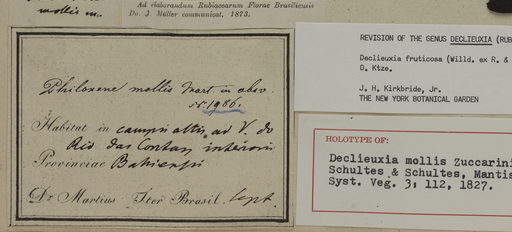 mollis m.
Ad elaborandum Rubiacearum Florae Brasiliensis
Do. J. Müller communicat. 1873.
Philoxene mollis Mart in obsv.
1986.
Habitat in campis altis, ad V. do
Rio das Contas interioris
Provinciae Bahiensis
Dr Martius Iter Brasil. Sept.
REVISION OF THE GENUS DECLIEUXIA (RUB
Declieuxia fruticosa (Willd. ex R. &
O. Ktze.
J. H. Kirkbride, Jr.
THE NEW YORK BOTANICAL GARDEN
HOLOTYPE OF:
Declieuxia mollis Zuccarini
Schultes & Schultes, Mantis
Syst. Veg. 3: 112, 1827.